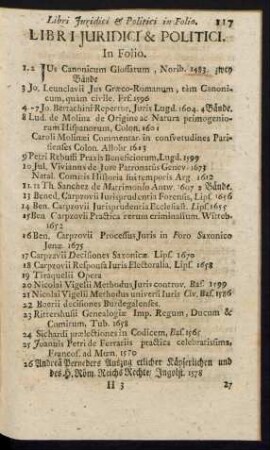 Libri Juridici & Politici in Folio. 117
LIBRI JURIDICI & POLITICI.
In Folio.
1. 2 JUs Canonicum Glossatum, Norib. 1483. zwey
Bände
3 Jo. Leunclavii Jus Græco-Romanum, tàm Canoni-
cum, quàm civile. Frf. 1596
4-7 Jo. Bertachini Repertor, Juris Lugd. 1604. 4 Bände.
8 Lud. de Molina de Origine ac Natura primogenio-
rum Hispanorum, Colon. 1601
Caroli Molinei Commentar. in consvetudines Pari-
sienses Colon. Allobr 1613
9 Petri Rebuffi Praxis Beneficiorum, Lugd. 1599
10 Jul. Vivianus de Jure Patronatus Genev. 1673
Natal. Comitis Historia sui temporis Arg. 1612
11. 12 Th. Sanchez de Matrimonio Antw. 1607 2 Bände.
13 Bened. Carpzovii Jurisprudentia Forensis, Lips. 1656
14 Ben. Carpzovii Jurisprudentia Ecclesiast. Lips. 1655
15 Ben Carpzovii Practica rerum criminalium. Witteb.
1652
16 Ben. Carpzovii Processus Juris in Foro Saxonico
Jenæ. 1675
17 Carpzovii Decisiones Saxonicæ. Lips. 1670
18 Carpzovii Responsa Juris Electoralia, Lips. 1658
19 Tiraquelli Opera
20 Nicolai Vigelii Methodus, Juris controv. Bas. 1599
21 Nicolai Vigelii Methodus universi Juris Civ. Bas. 1586
22 Boerii decisiones Burdegalenses.
23 Rittershusii Genealogiæ Imp. Regum, Ducum &
Comitum, Tub. 1658
24 Sichardi prælectiones in Codicem, Bas. 1565
25 Joannis Petri de Ferrariis practica celebratissima.
Francof. ad Mœn. 1570
26 Andreä Perneders Auszug etlicher Käyserlichen und
des H. Röm. Reichs Rechte/ Ingolst. 1578
H 3 27